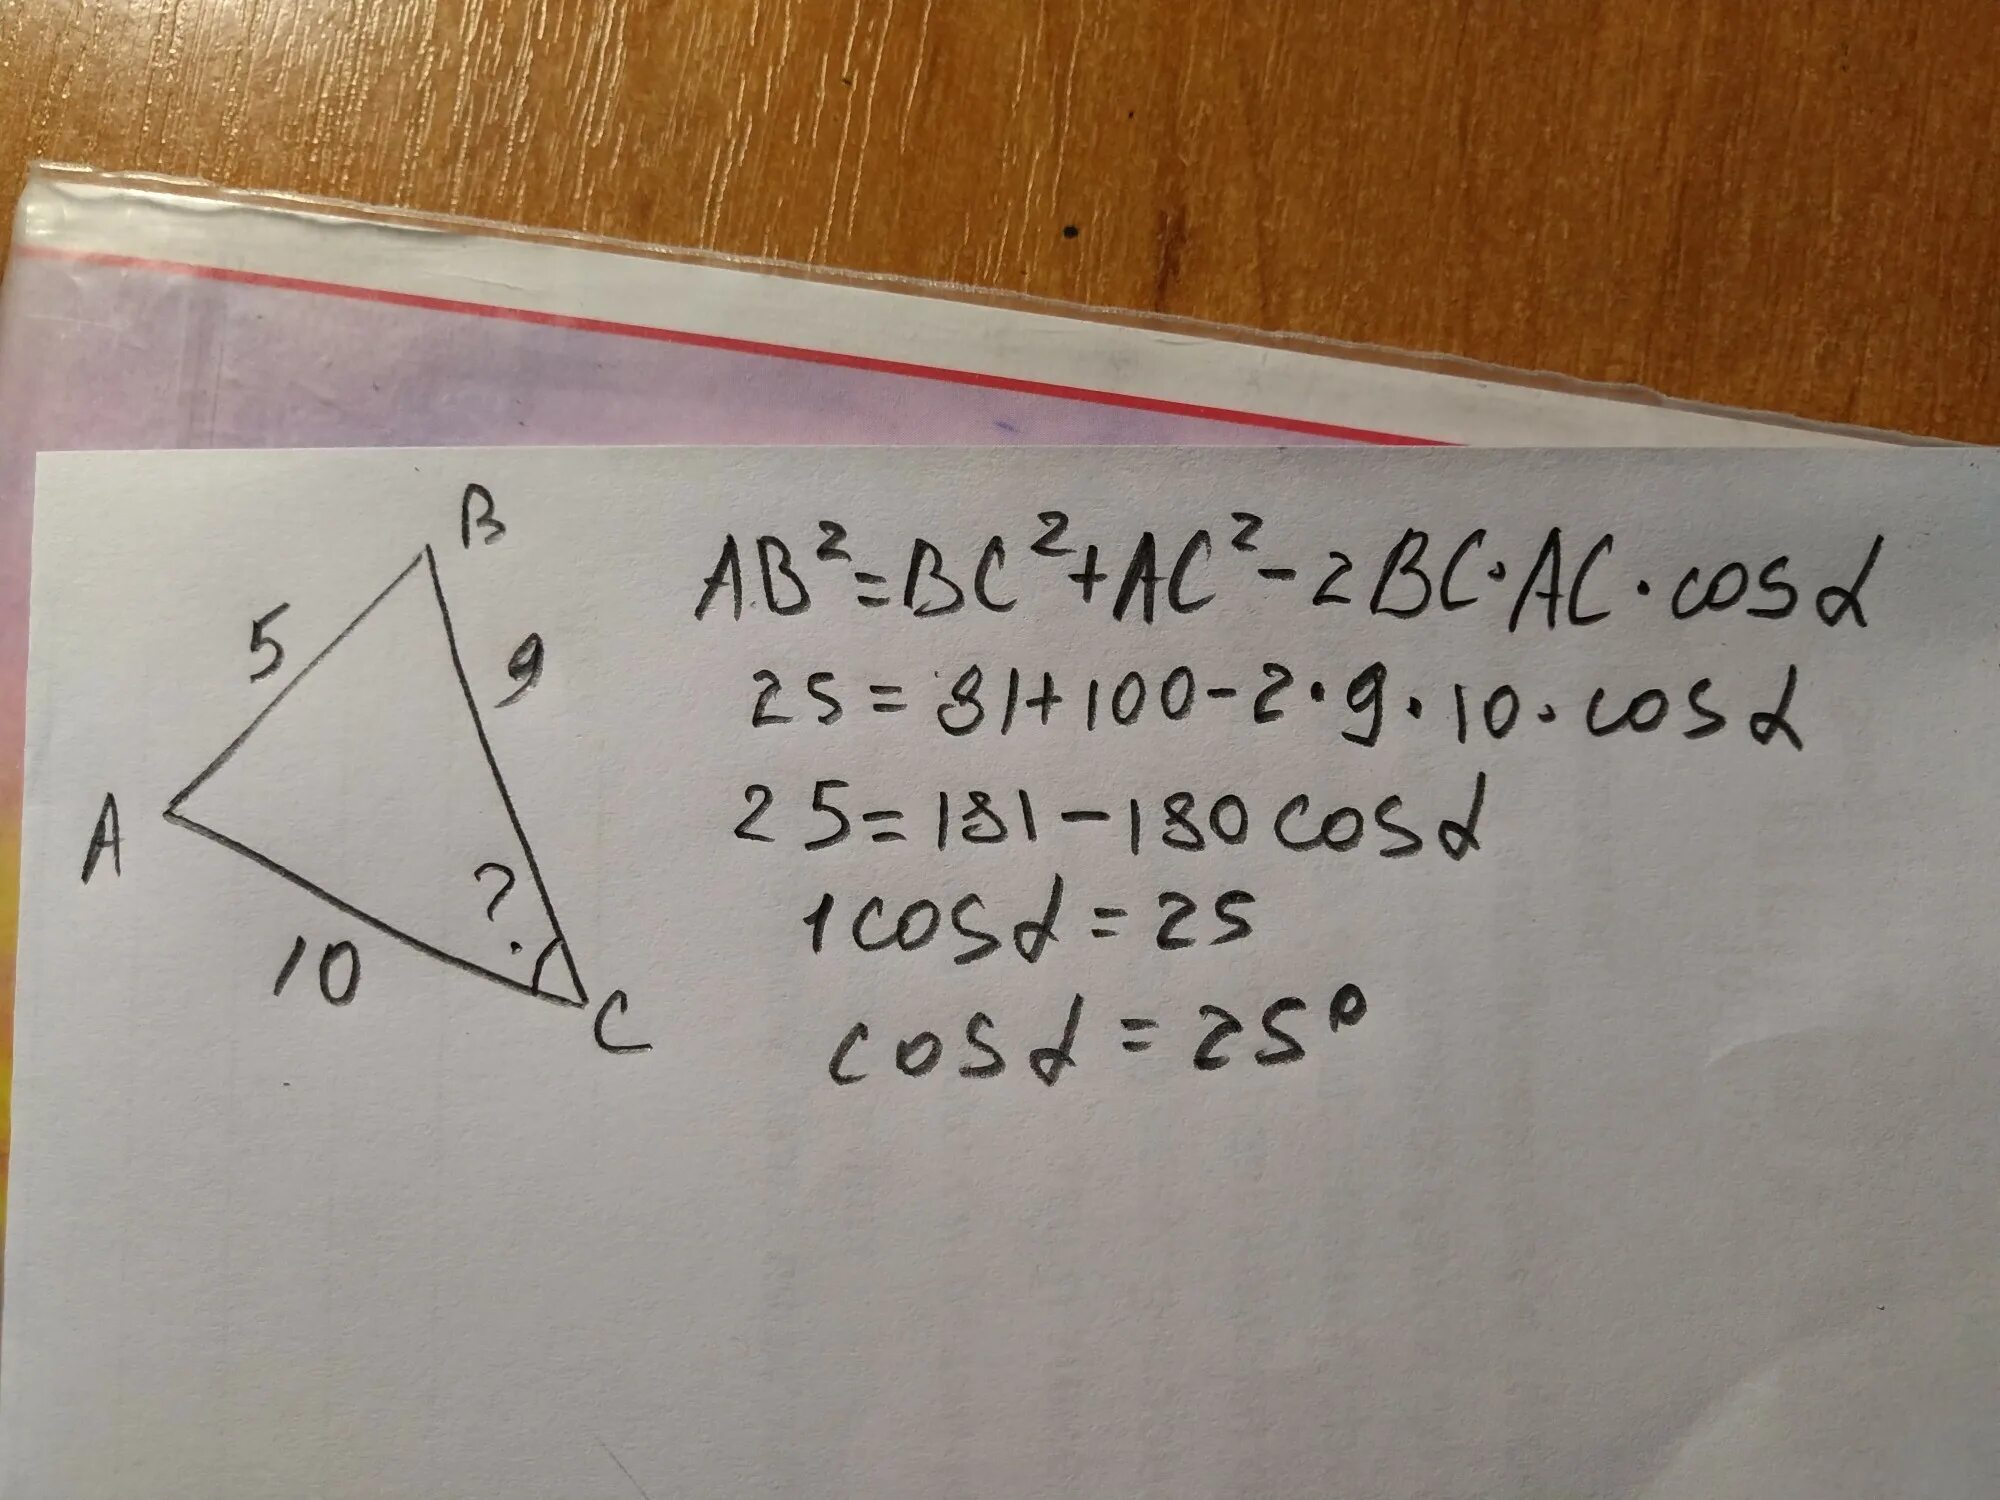 B
5
9
A
?
10
C
AB²=BC²+AC²-2BC·AC·cosα
25=81+100-2·9·10·cosα
25=181-180cosα
1cosα=25
cosα=25°